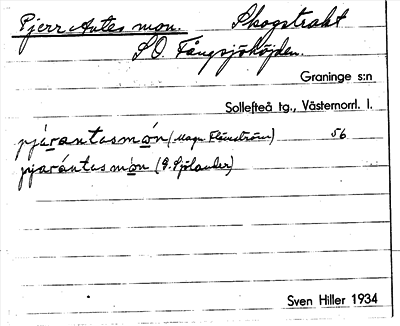 Pjerr Antes mon. Skogstrakt
SO. Fångsjöhöjden.
Graninge s:n
Sollefteå tg., Västernorrl. l.
pjärantasmòn (Magn. Flemström) 56
pjarántas mòn (G. Sjölander)
Sven Hiller 1934